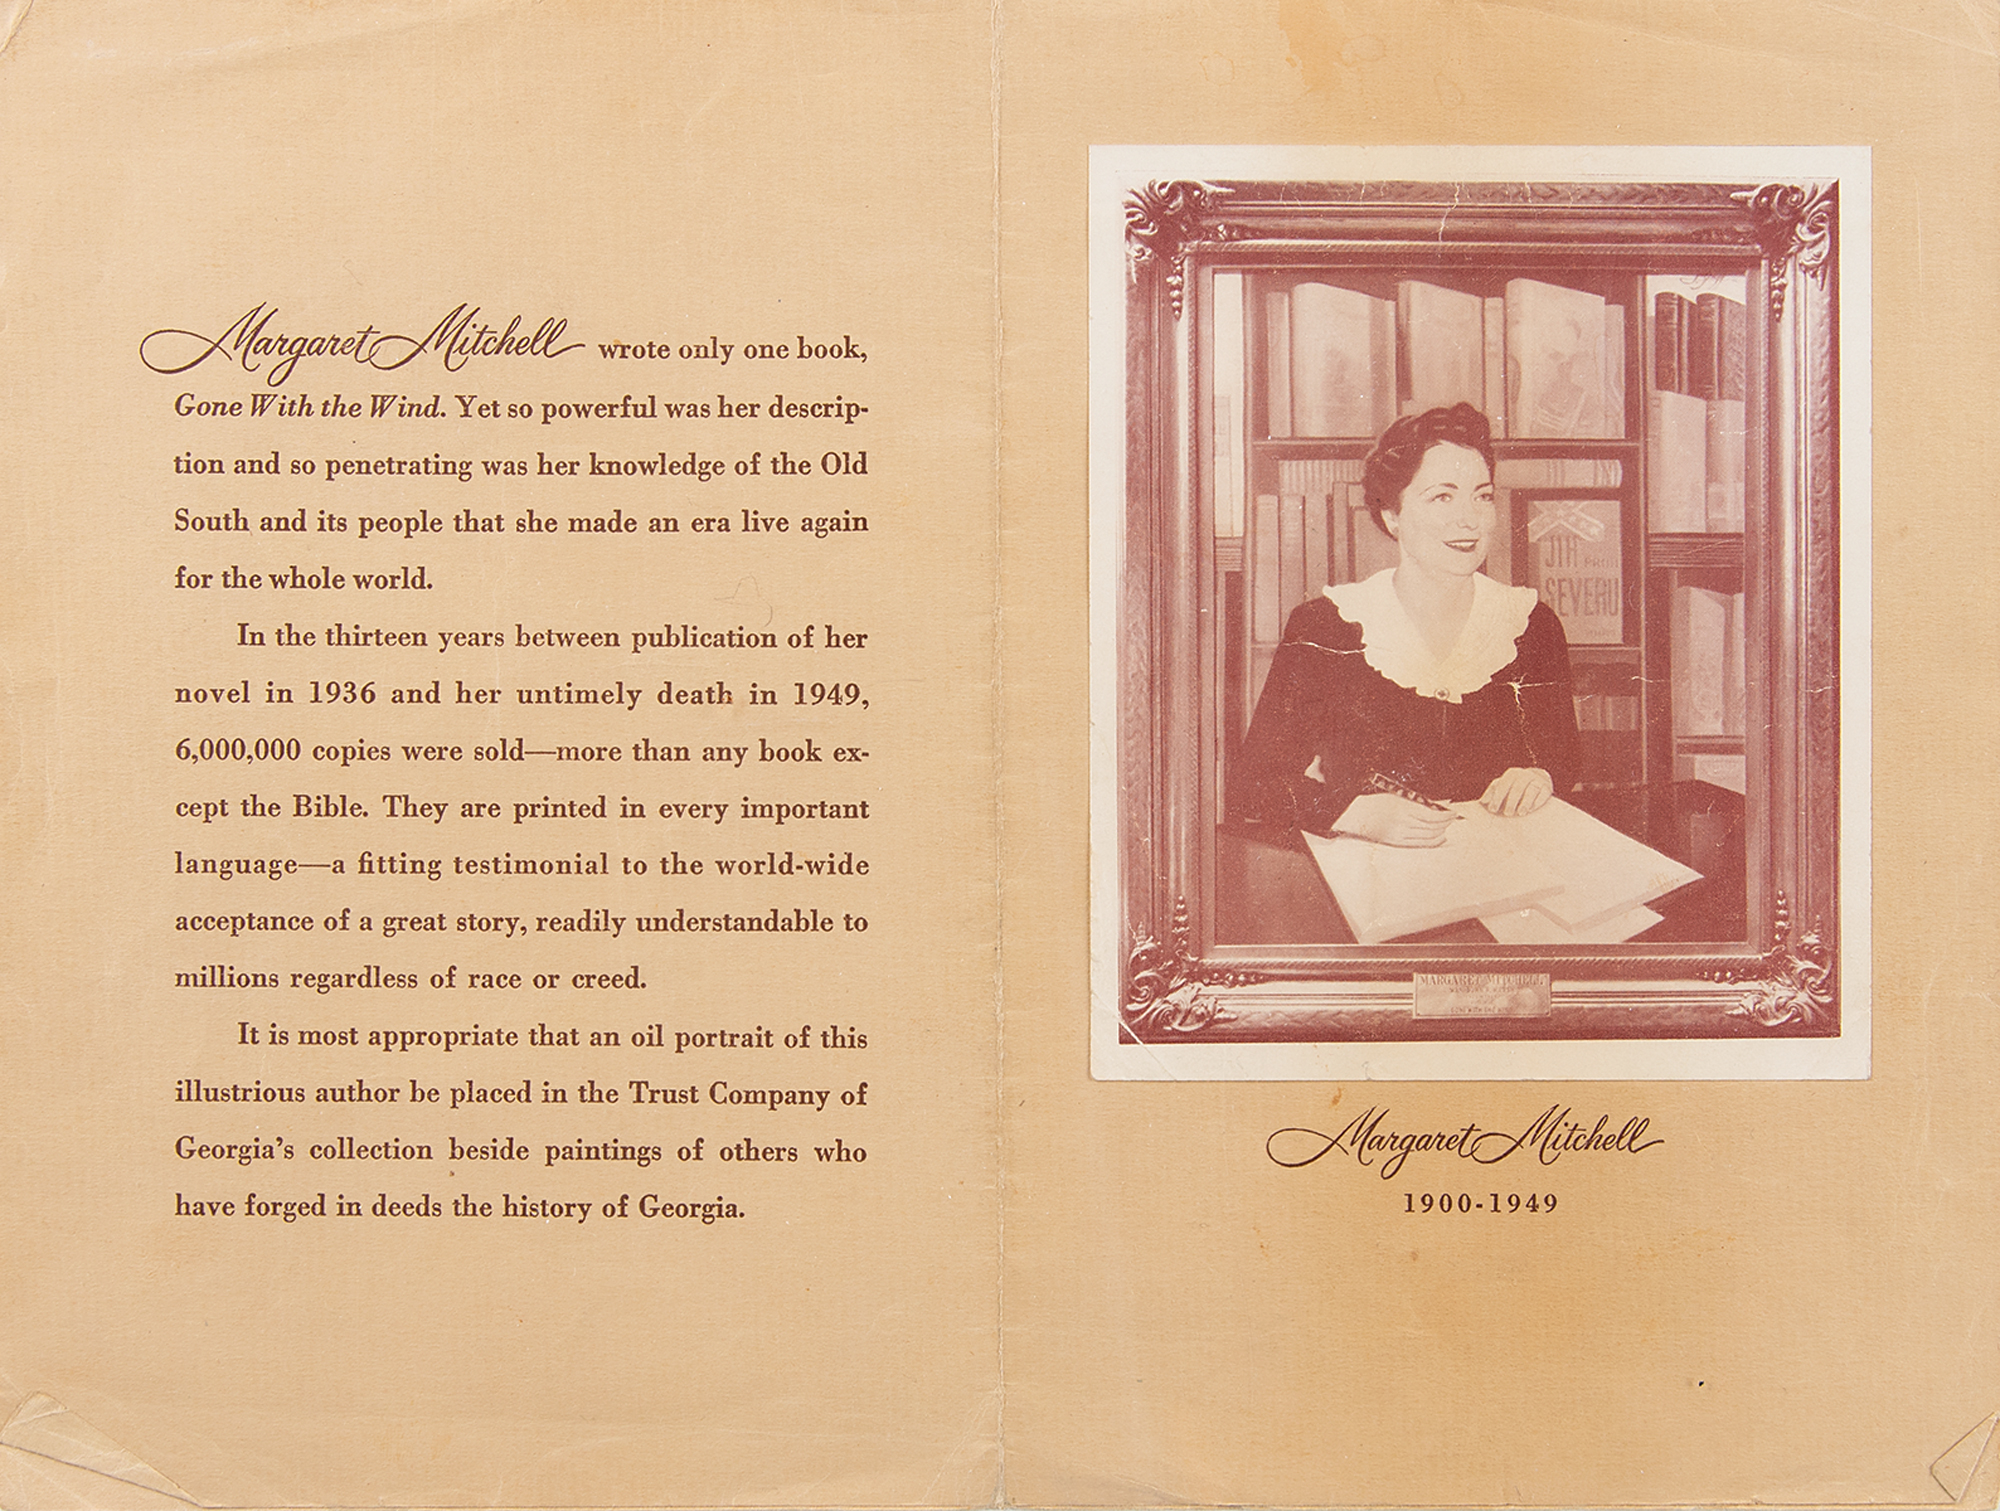 Margaret Mitchell wrote only one book,
Gone With the Wind. Yet so powerful was her descrip-
tion and so penetrating was her knowledge of the Old
South and its people that she made an era live again
for the whole world.
In the thirteen years between publication of her
novel in 1936 and her untimely death in 1949,
6,000,000 copies were sold—more than any book ex-
cept the Bible. They are printed in every important
language—a fitting testimonial to the world-wide
acceptance of a great story, readily understandable to
millions regardless of race or creed.
It is most appropriate that an oil portrait of this
illustrious author be placed in the Trust Company of
Georgia's collection beside paintings of others who
have forged in deeds the history of Georgia.
JIH PROTI
SEVERU
MARGARET MITCHELL
Margaret Mitchell
1900-1949